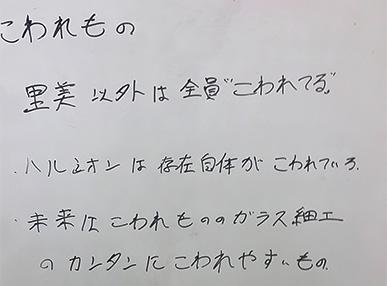 こわれもの
里美以外は全員"こわれてる"
・ハルシオンは存在自体がこわれている.
・未来はこわれもののガラス細工
のカンタンにこわれやすいもの.